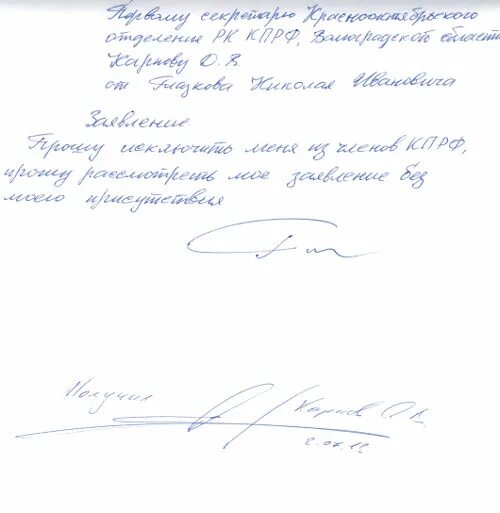 Первому секретарю Краснооктябрьского
отделение РК КПРФ, Волгоградской области
Карпову О. В.
от Глазкова Николая Ивановича
Заявление.
Прошу исключить меня из членов КПРФ,
прошу рассмотреть мое заявление без
моего присутствия
Получил
Карпов О В.